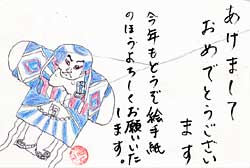 あけまして
おめでとうござい
ます
今年もどうぞ絵手紙
のほうよろしくお願いいた
します。